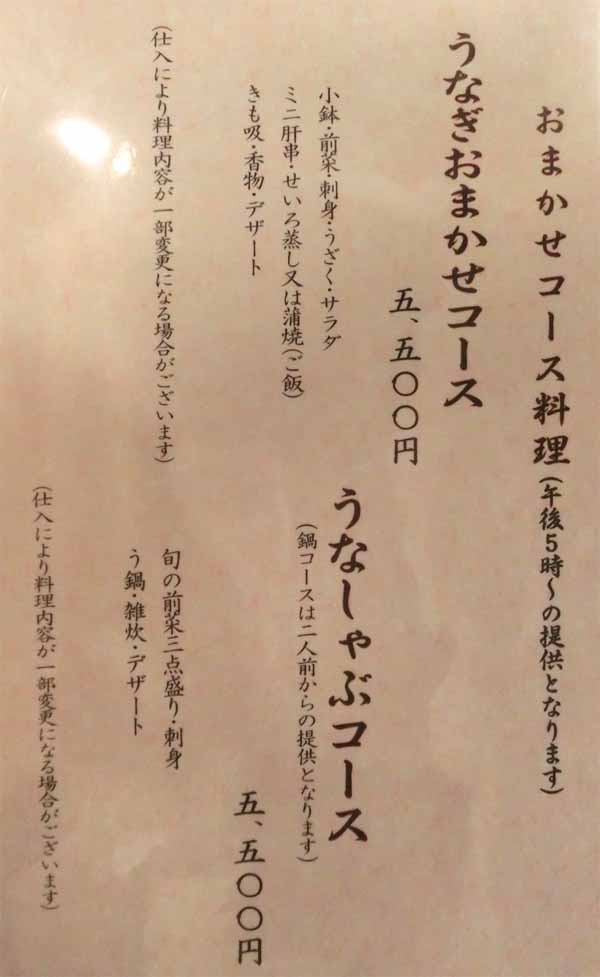 おまかせコース料理(午後5時～の提供となります)
うなぎおまかせコース
五、五〇〇円
小鉢・前菜・刺身・うざく・サラダ
ミニ肝串・せいろ蒸し又は蒲焼(ご飯)
きも吸・香物・デザート
(仕入により料理内容が一部変更になる場合がございます)
うなしゃぶコース
(鍋コースは二人前からの提供となります)
五、五〇〇円
旬の前菜三点盛り・刺身
う鍋・雑炊・デザート
(仕入により料理内容が一部変更になる場合がございます)